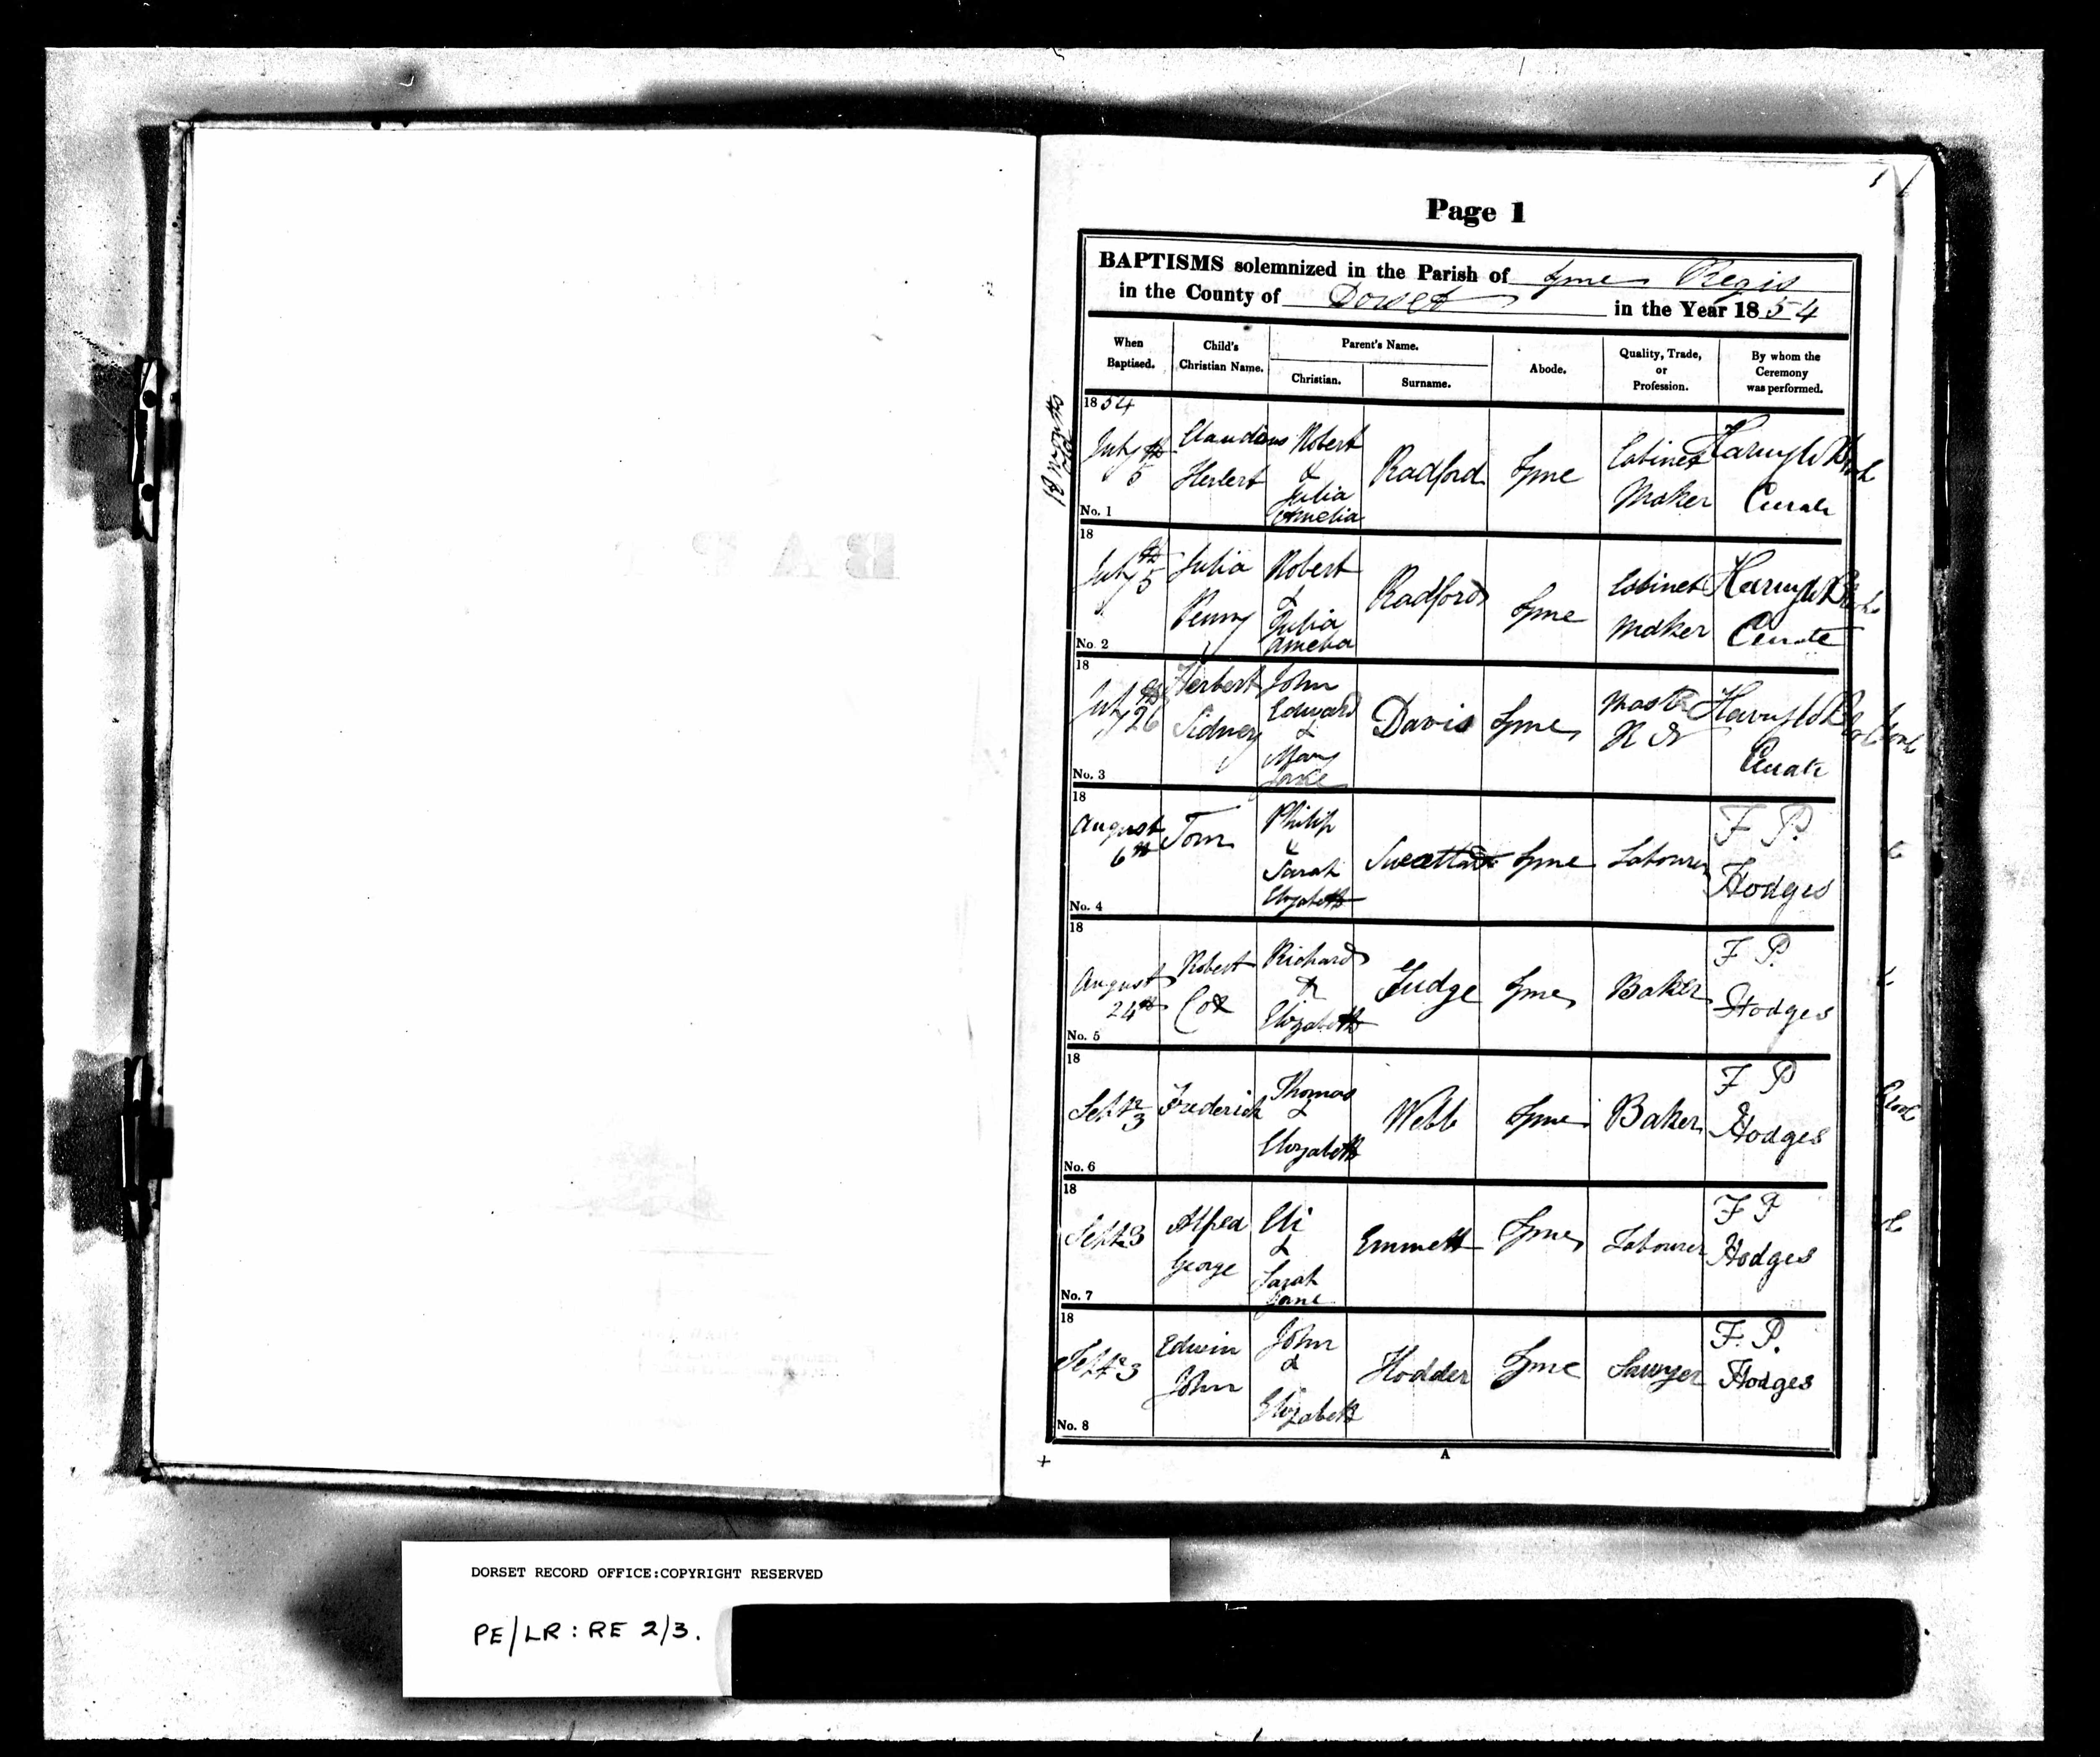 Page 1
BAPTISMS solemnized in the Parish of Lyme Regis
in the County of Dorset in the Year 1854
When Baptised.
Child's Christian Name.
Parent's Name.
Christian.
Surname.
Abode.
Quality, Trade, or Profession.
By whom the Ceremony was performed.
18 months old
1854
July 5th
Claudius Herbert
Robert & Julia Amelia
Radford
Lyme
Cabinet Maker
Curate
No. 1
18
July 5th
Julia Penny
Robert & Julia Amelia
Radford
Lyme
Cabinet Maker
Curate
No. 2
18
July 26th
Herbert Sidney
John Edward & Mary
Davis
Lyme
Master R N
Curate
No. 3
18
August 6th
Tom
Philip & Sarah Elizabeth
Lyme
Labourer
F P. Hodges
No. 4
18
August 24th
Robert Cox
Richard & Elizabeth
Judge
Lyme
Baker
F P. Hodges
No. 5
18
Sept 3
Frederick
Thomas & Elizabeth
Webb
Lyme
Baker
F P Hodges
No. 6
18
Sept 3
Alfred George
Eli & Sarah Jane
Emmett
Lyme
Labourer
F P Hodges
No. 7
18
Sept 3
Edwin John
John & Elizabeth
Hodder
Lyme
Sawyer
F. P. Hodges
No. 8
A
DORSET RECORD OFFICE:COPYRIGHT RESERVED
PE/LR : RE 2/3.